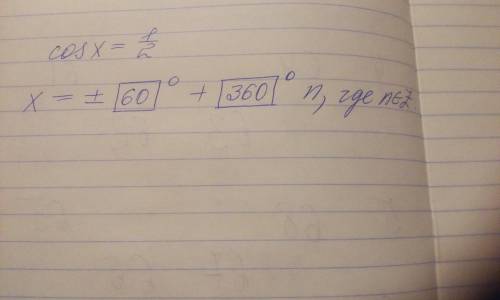 cos x = 1/2
x = ± 60° + 360° n, где n∈Z